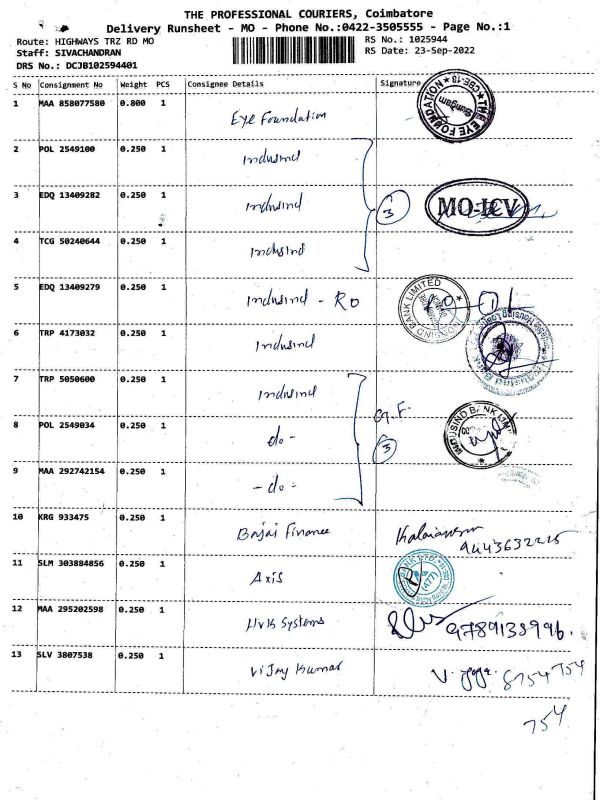 THE PROFESSIONAL COURIERS, Coimbatore
Delivery Runsheet - MO - Phone No.:0422-3505555 - Page No.:1
Route: HIGHWAYS TRZ RD MO
RS No.: 1025944
Staff: SIVACHANDRAN
RS Date: 23-Sep-2022
DRS No.: DCJB102594401
S No Consignment No Weight PCS Consignee Details Signature
1 MAA 858077580 0.800 1 Eye Foundation
THE EYE FOUNDATION CBE-18
2 POL 2549100 0.250 1 Indusind
3 EDQ 13409282 0.250 1 Indusind 3 MO-ICV
4 TCG 50240644 0.250 1 Indusind
5 EDQ 13409279 0.250 1 Indusind - RO
6 TRP 4173032 0.250 1 Indusind
7 TRP 5050600 0.250 1 Indusind
8 POL 2549034 0.250 1 do - 3
9 MAA 292742154 0.250 1 - do -
10 KRG 933475 0.250 1 Bajaj Finance
11 SLM 303884856 0.250 1 Axis
12 MAA 295202598 0.250 1 HVK Systems 9789138996.
13 SLV 3807538 0.250 1 Vijay Kumar 8754 754
754